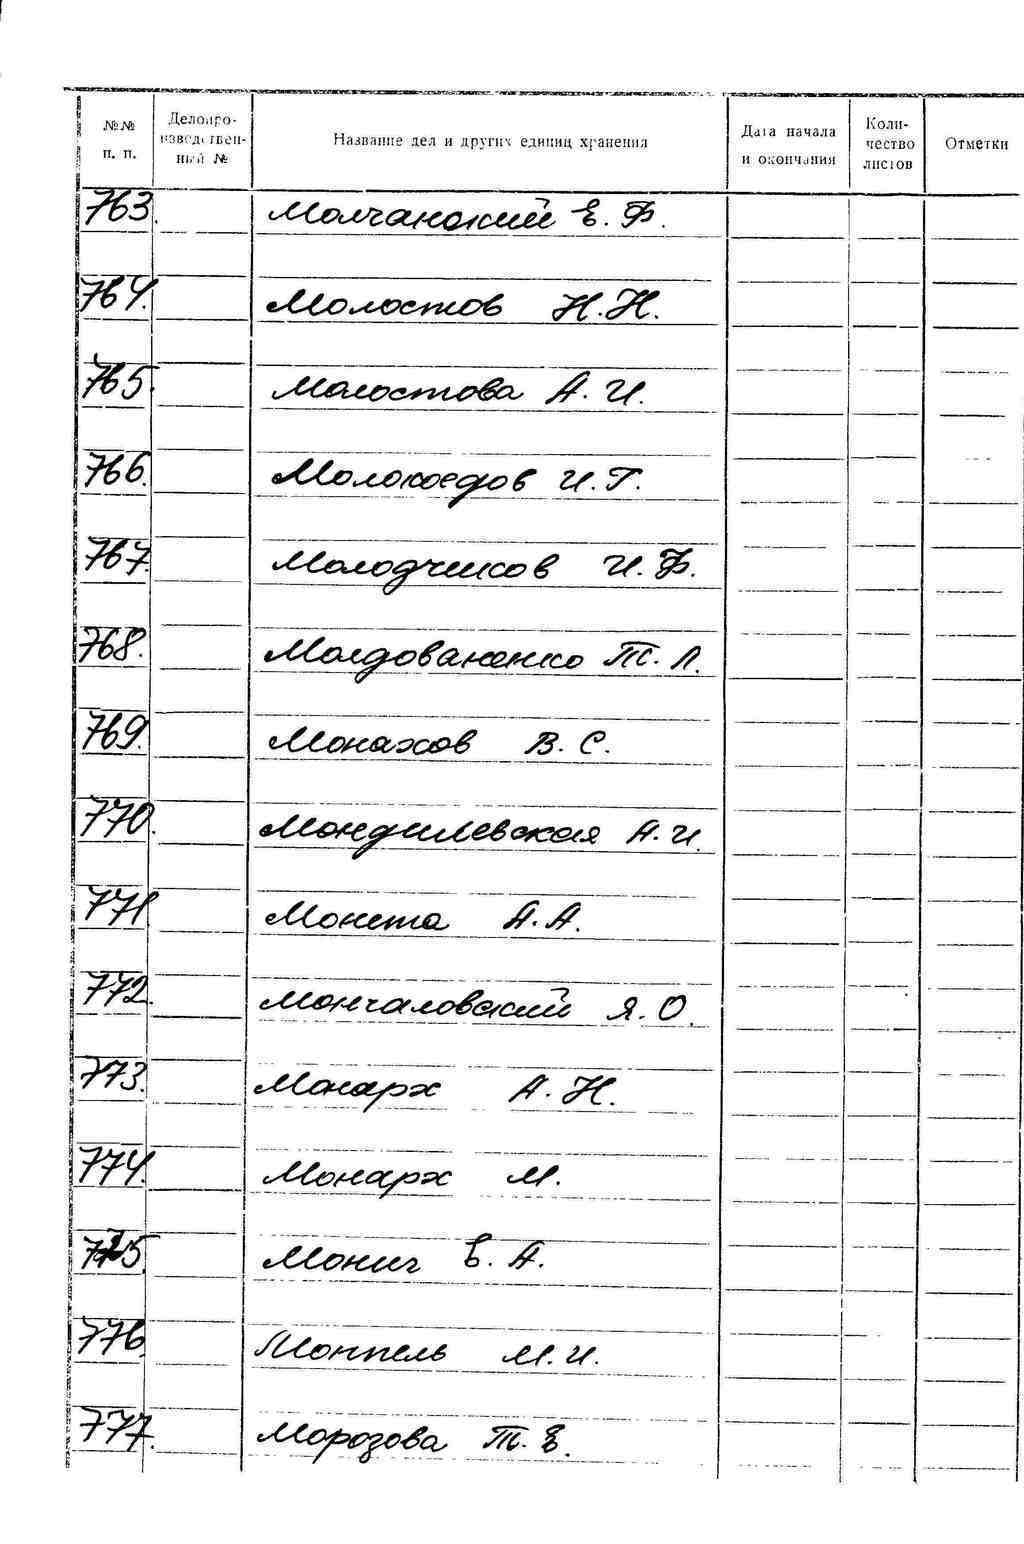 №№ п. п. Делопроизводственный № Название дел и других единиц хранения Дата начала и окончания Количество листов Отметки
763. Молчанский Е. Ф.
764. Молостов Н. Н.
765. Молостова А. И.
766. Молокоедов И. Г.
767. Молодчиков И. Ф.
768. Молдованенко Т. Л.
769. Монахов В. С.
770. Мондилевская А. И.
771. Монета А. А.
772. Мончаловский Я. О.
773. Монарх А. Н.
774. Монарх М.
775. Монич Е. А.
776. Монпель М. И.
777. Морозова Т. Е.